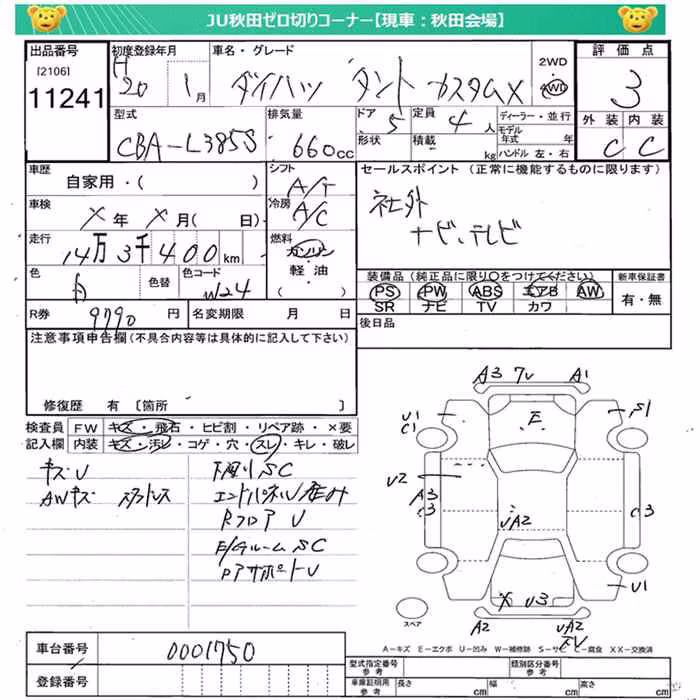 JU秋田ゼロ切りコーナー【現車：秋田会場】
出品番号
［2106］
11241
初度登録年月
H
20 1月
車名・グレード
ダイハツ タント カスタムX
2WD
4WD
評価点
3
外装 内装
C C
型式
CBA-L385S
排気量
660cc
ドア 5
形状
定員 4人
積載 kg
ディーラー・並行
モデル年式 年
ハンドル 左・右
車歴
自家用・( )
シフト
A/T
車検
X年 X月( 日)
冷房
A/C
走行
14万3千400km
燃料
ガソリン
軽油
( )
色
白
色替
色コード
W24
R券 9790円
名変期限 月 日
セールスポイント (正常に機能するものに限ります)
社外
ナビ、テレビ
装備品(純正品に限り○をつけてください)
PS PW ABS エアB AW
SR ナビ TV カワ
新車保証書
有・無
後日品
注意事項申告欄(不具合内容等は具体的に記入して下さい)
修復歴 有 〔箇所 〕
検査員記入欄
FW キズ・飛石・ヒビ割・リペア跡・×要
内装 キズ・汚レ・コゲ・穴・スレ・キレ・破レ
キズU
AWキズ スタットレス
下廻りSC
RフロアU
E/GルームSC
A3 7U A1
U1
C1
E
S1
U2
A3
C3
UA2
C3
X U3
U1
スペア
A2 UA2
A-キズ E-エクボ U-凹み W-補修跡 S-サビ C-腐食 XX-交換済
車台番号
0001750
登録番号
型式指定番号
参考
類別区分番号
参考
車庫証明用
参考
長さ cm
幅 cm
高さ cm